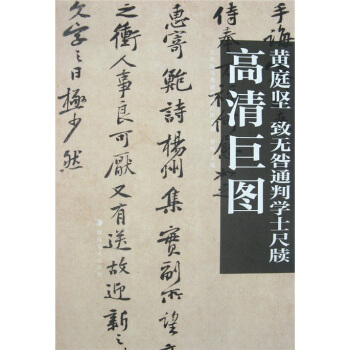 黄庭坚 致无咎通判学士尺牍
高清巨图
手诲
侍奉
惠寄鲍诗杨州集实副所望
之衝人事良可厭又有送故迎新之
文字之日極少然